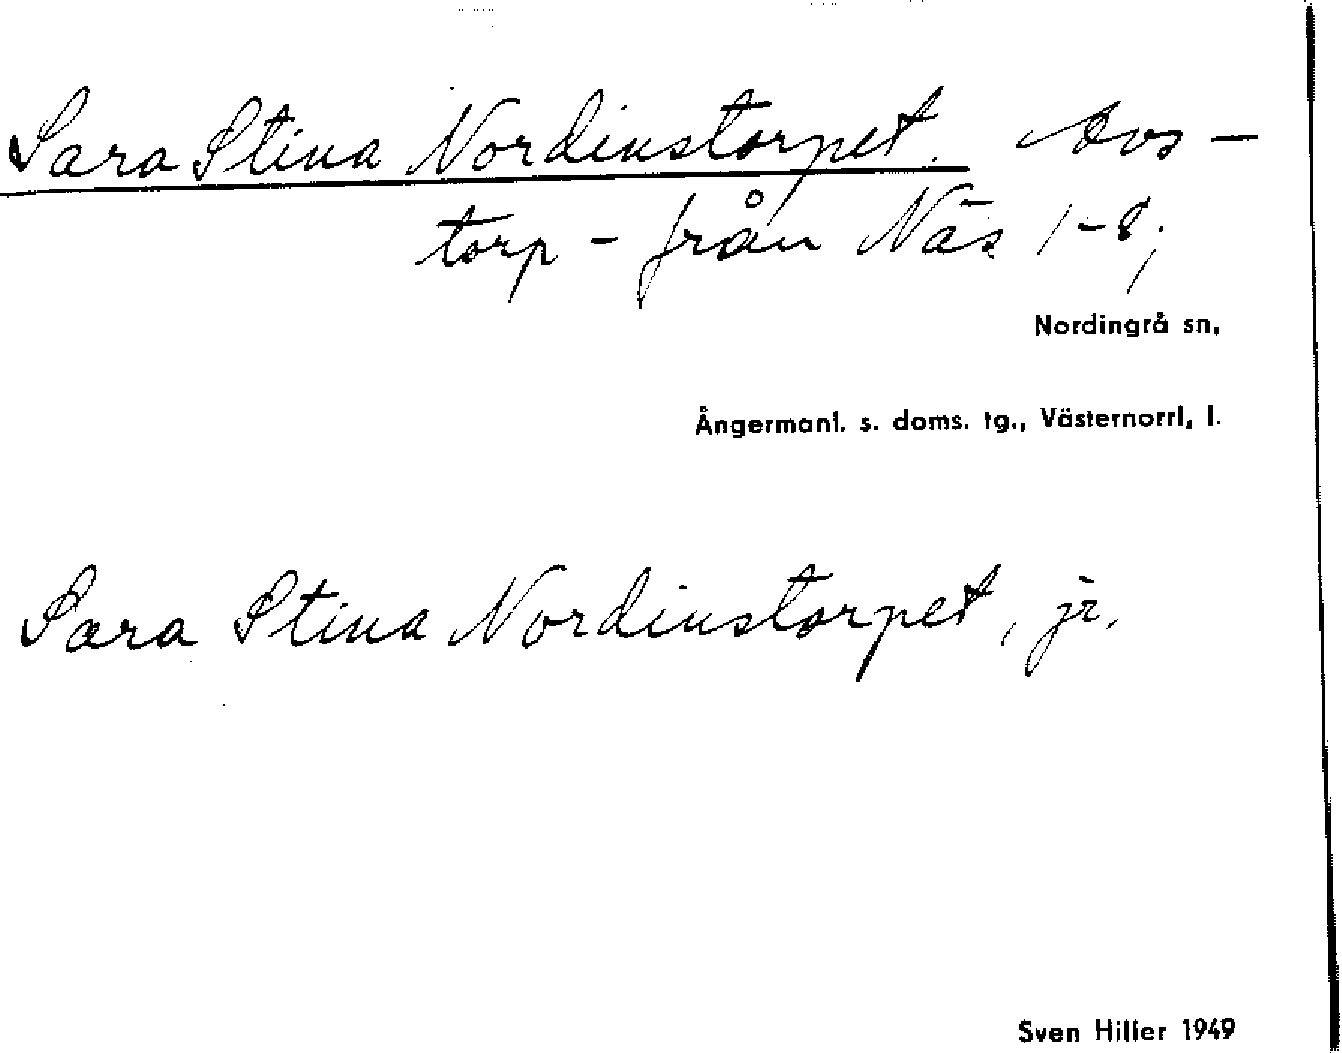 Sara Stina Nordinstorpet. Avs-
torp - från Näs 1-8;
Nordingrå sn,
Ångermanl. s. doms. tg., Västernorrl, l.
Sara Stina Nordinstorpet, jr.
Sven Hiller 1949